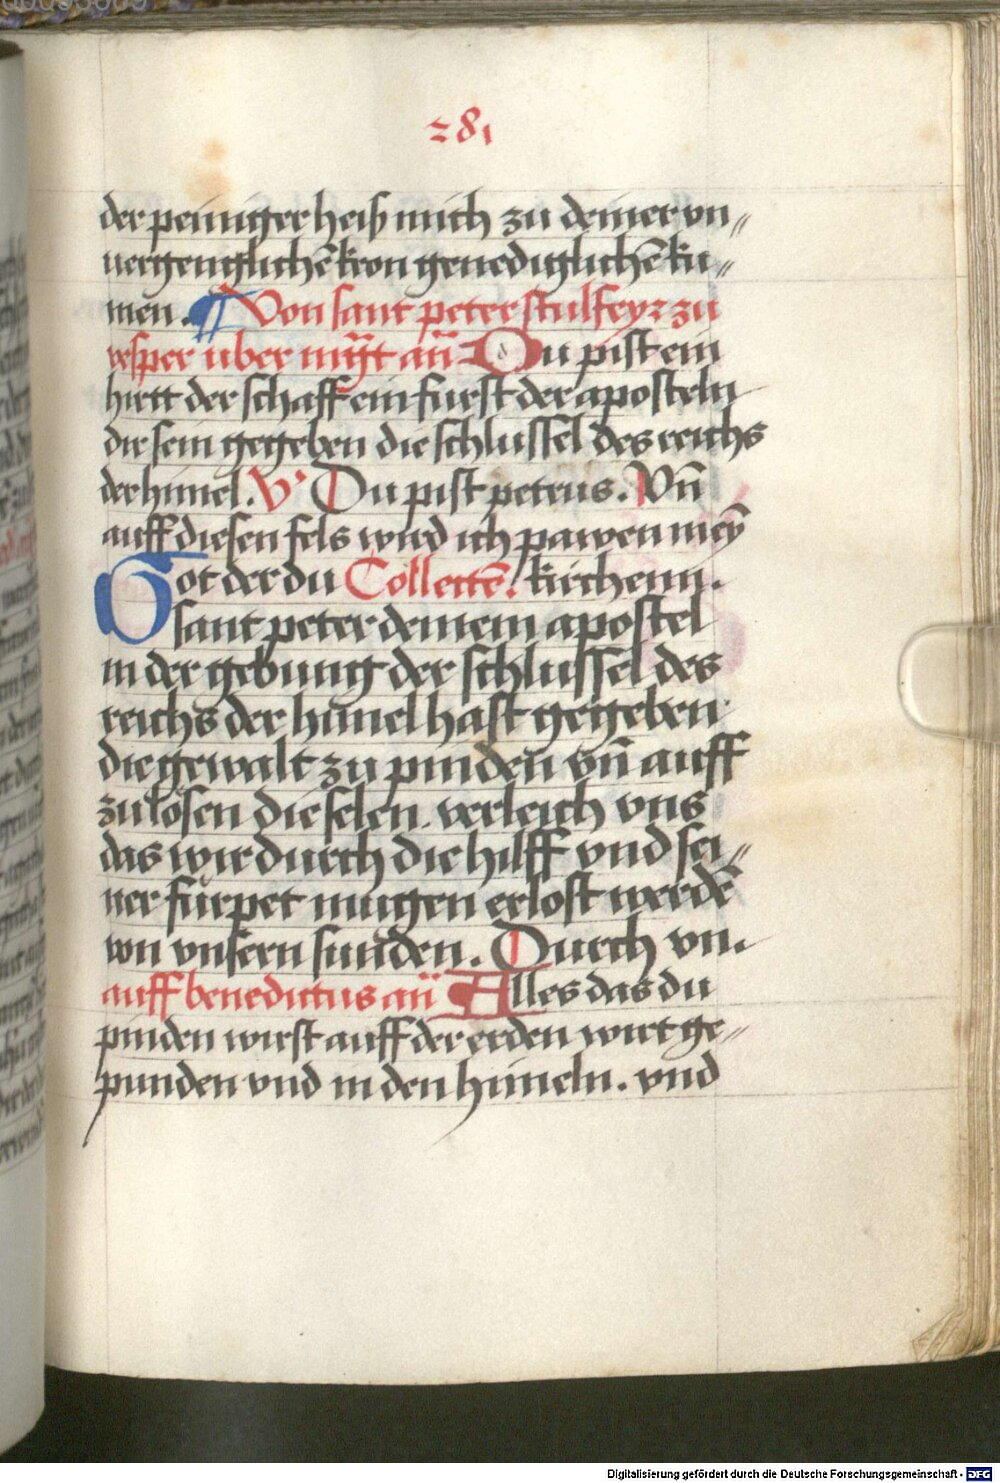 281
der peiniger heiß mich zu deiner vn〃
uergenglichē kron genediglichē ku〃
men. ¶ Von sant peter stulfeyr zu
vesper uber mḡt an̄ Du pist ein
hirtt der schaff ein furst der aposteln
dir sein gegeben die schlussel des reichs
der himel. V̛ Du pist petrus. Vn̄
auff diesen fels wird ich pawen meȳ
Got der du Collectē. kirchenn.
sant peter deinem apostel
in der gebung der schlussel des
reichs der himel hast gegeben
die gewalt zu pinden vn̄ auff
zulösen die selen. verleich vns
das wir durch die hilff vnd sei〃
ner fürpet mugen erlost werdē
von vnsern sunden. Durch vn.
auff benedictus an̄ Alles das du
pinden wirst auff der erden wirt ge〃
punden vnd in den himeln. vnd
Digitalisierung gefördert durch die Deutsche Forschungsgemeinschaft - DFG